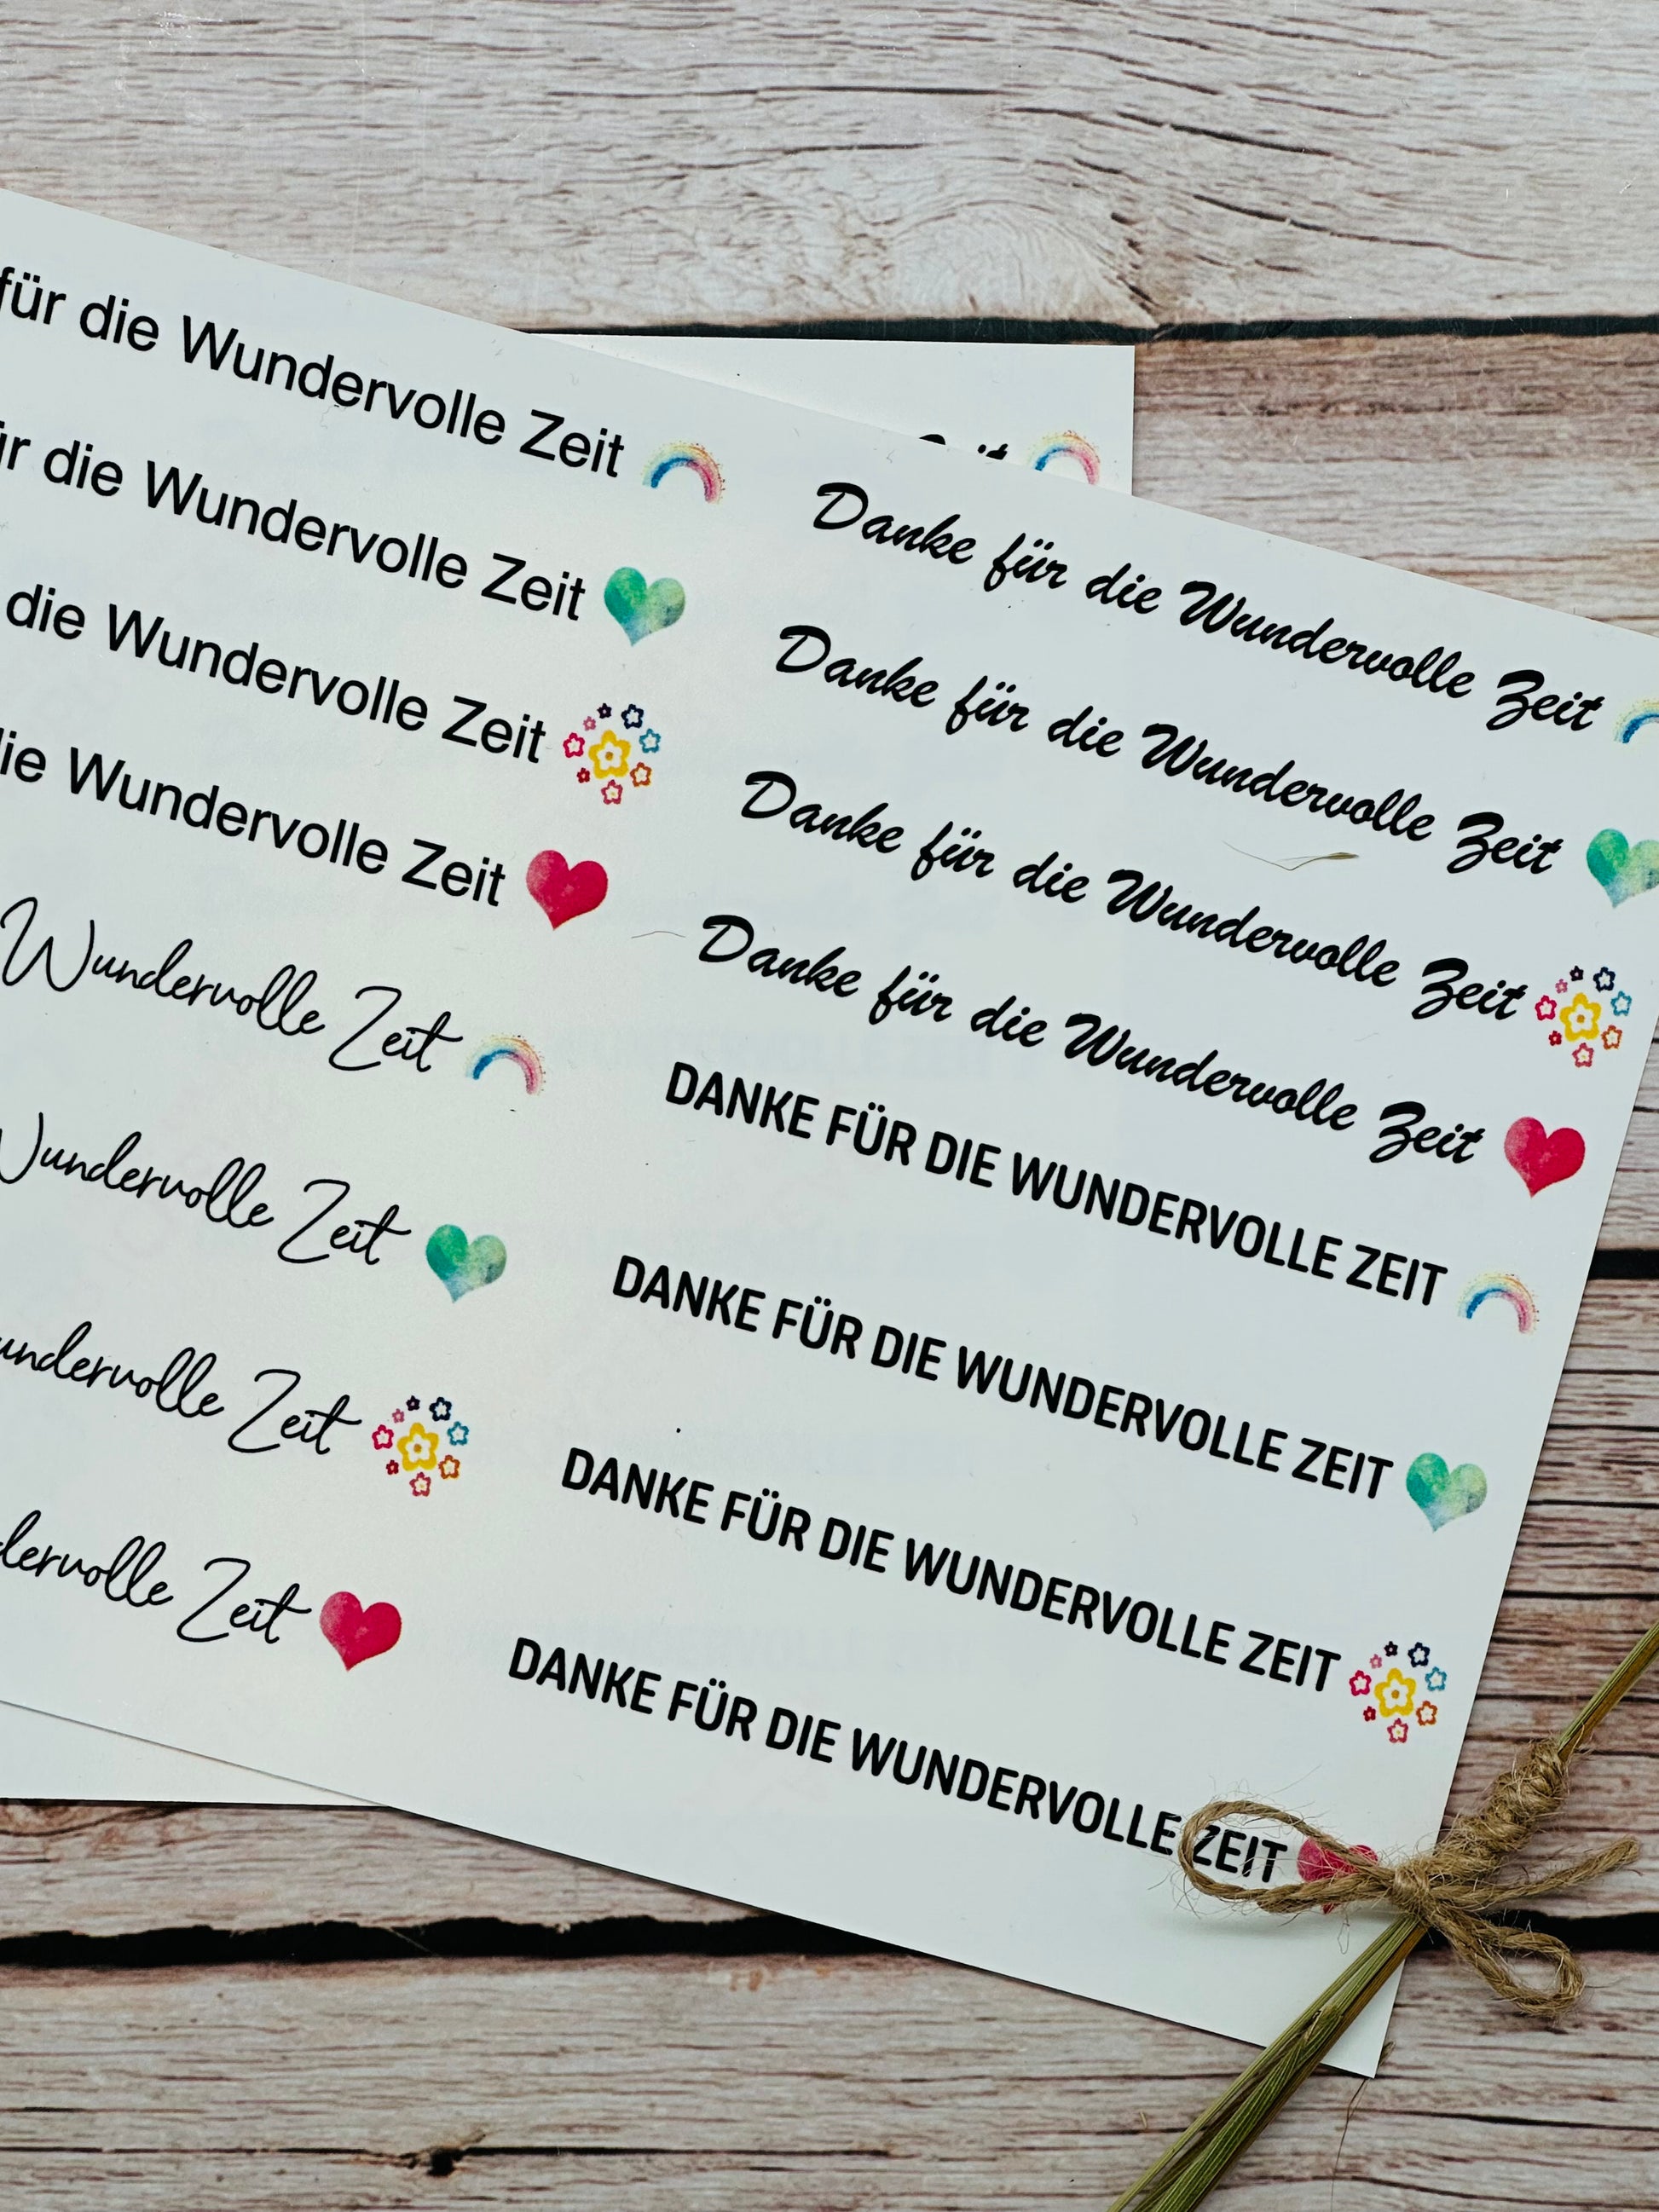 für die Wundervolle Zeit
die Wundervolle Zeit
die Wundervolle Zeit
die Wundervolle Zeit
Wundervolle Zeit
Wundervolle Zeit
Zeit
Zeit
Danke für die Wundervolle Zeit
Danke für die Wundervolle Zeit
Danke für die Wundervolle Zeit
Danke für die Wundervolle Zeit
DANKE FÜR DIE WUNDERVOLLE ZEIT
DANKE FÜR DIE WUNDERVOLLE ZEIT
DANKE FÜR DIE WUNDERVOLLE ZEIT
DANKE FÜR DIE WUNDERVOLLE ZEIT